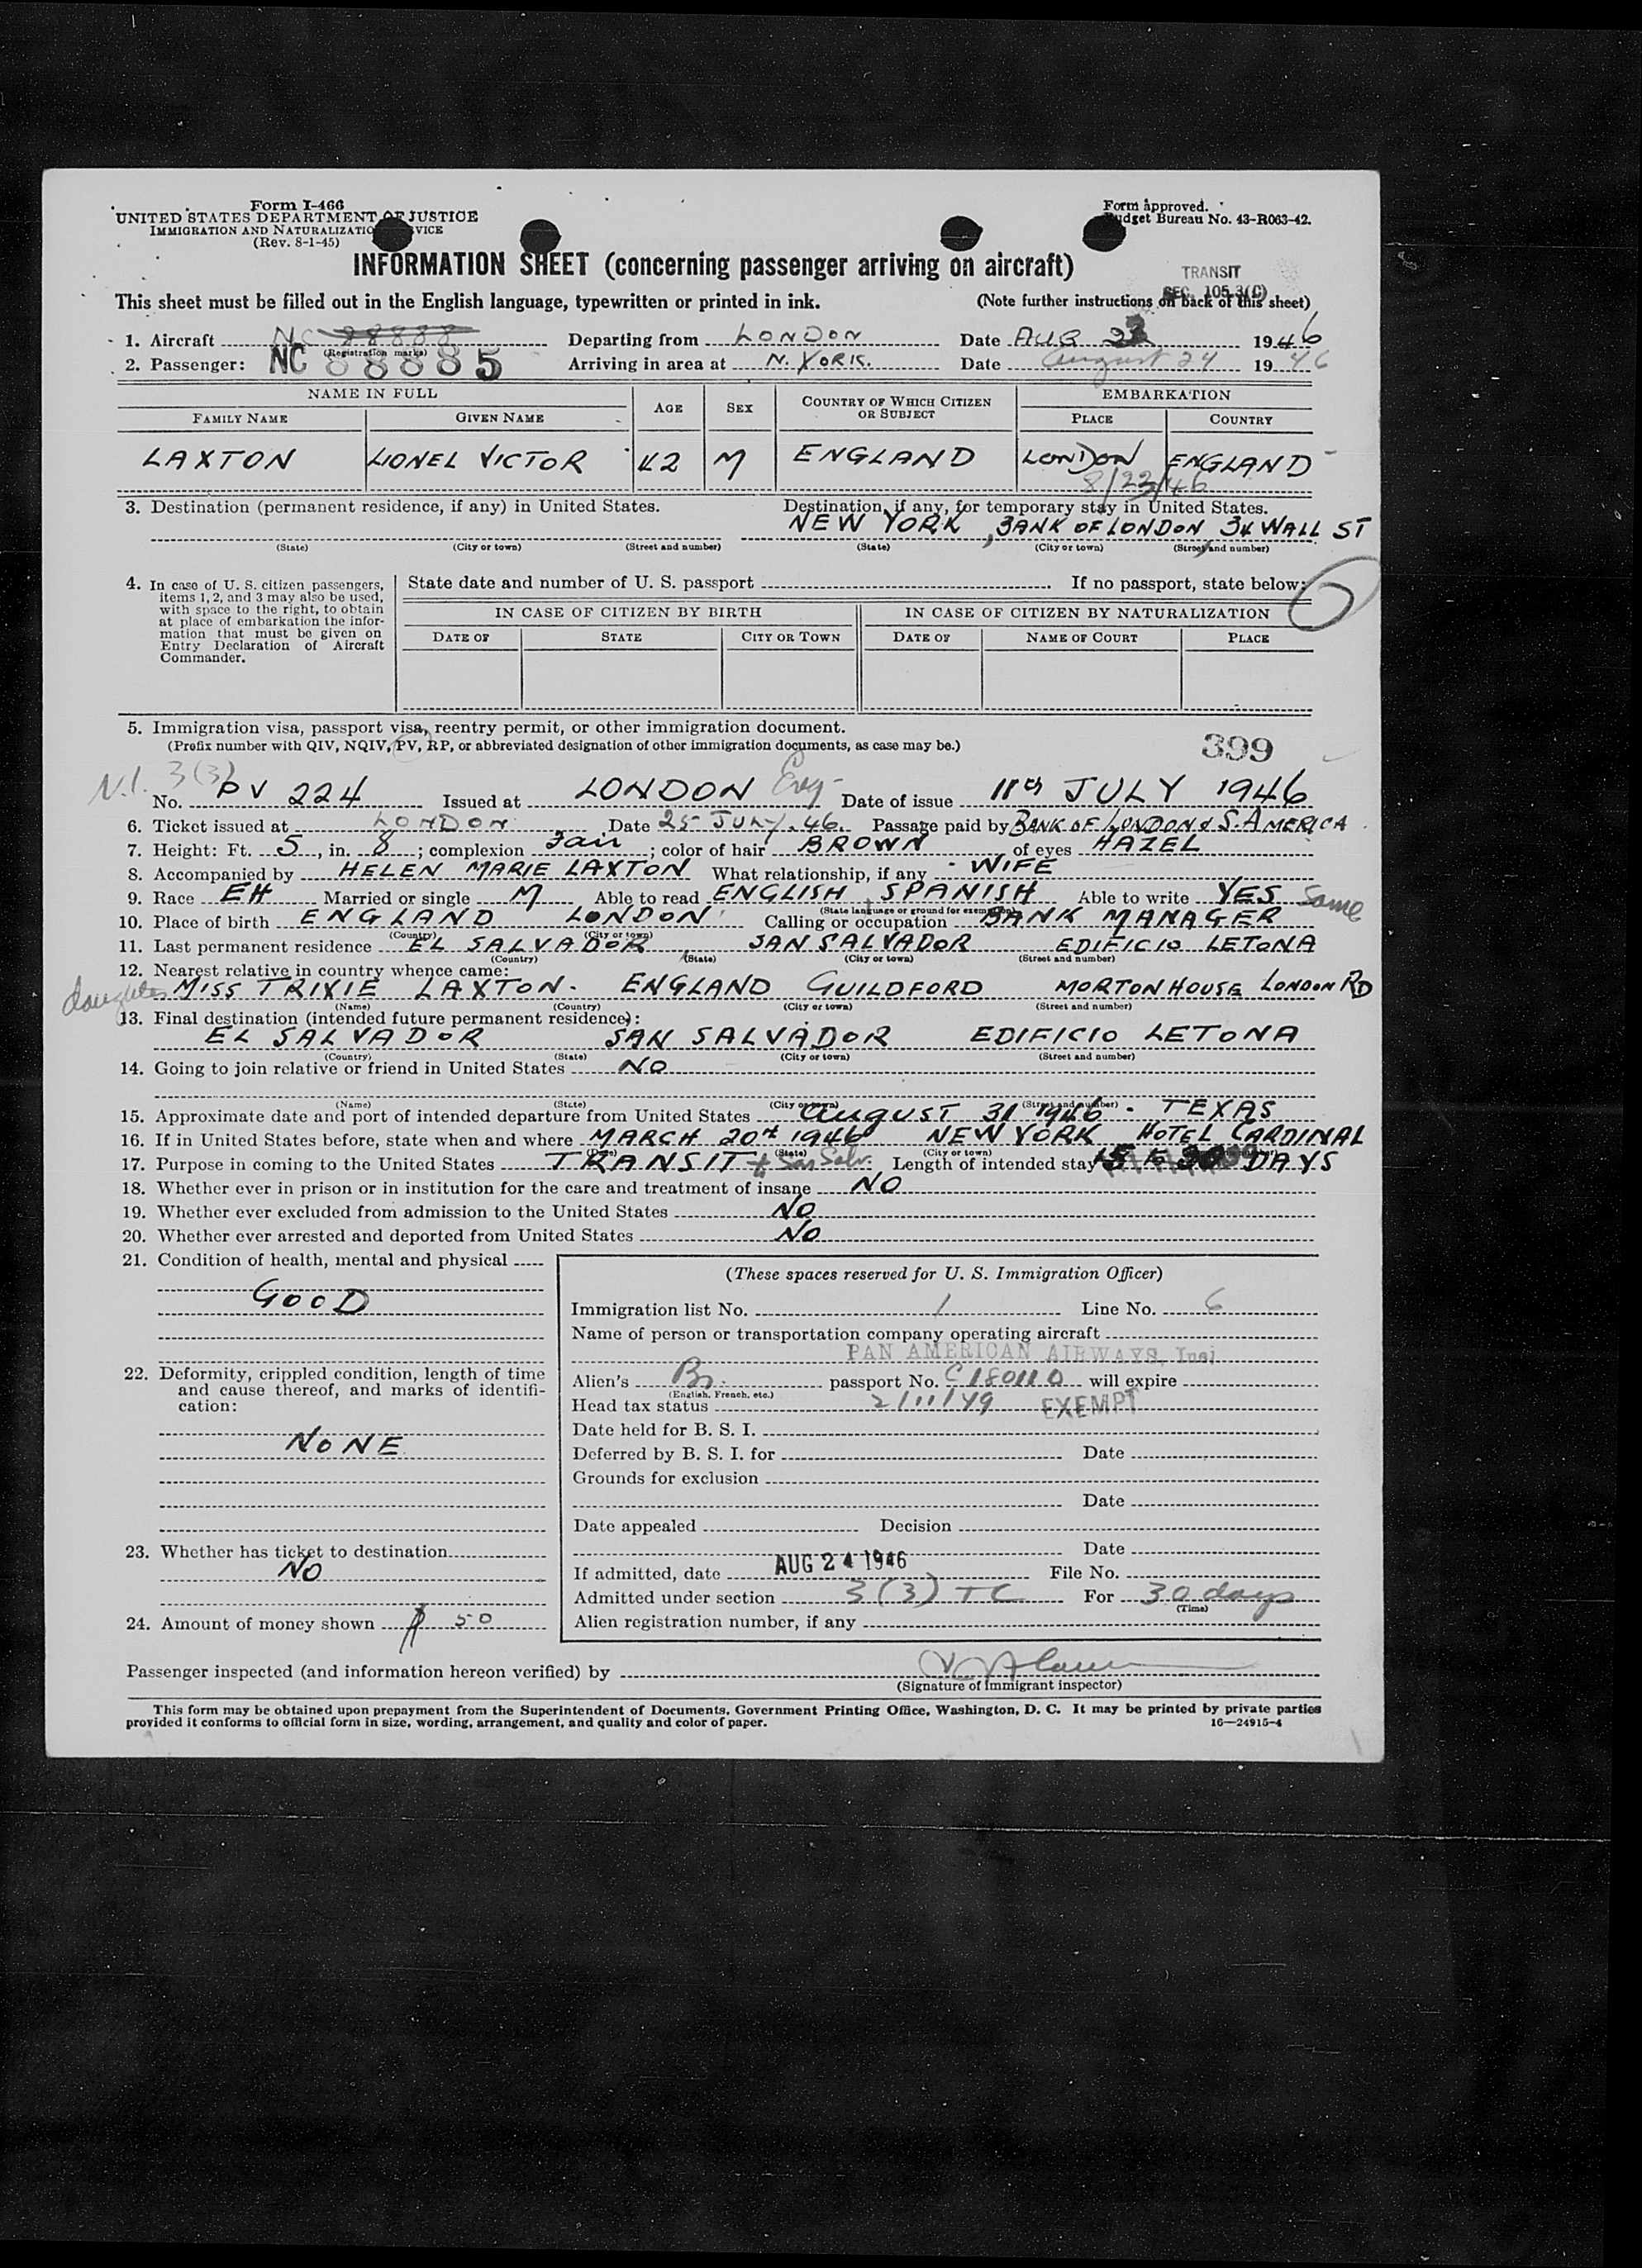 Form I-466
UNITED STATES DEPARTMENT OF JUSTICE
IMMIGRATION AND NATURALIZATION SERVICE
(Rev. 8-1-45)
Form approved.
Budget Bureau No. 43-R063-42.
INFORMATION SHEET (concerning passenger arriving on aircraft)
TRANSIT
SEC. 105.3(C)
This sheet must be filled out in the English language, typewritten or printed in ink. (Note further instructions on back of this sheet)
1. Aircraft NC 28888 Departing from LONDON Date AUG 23 1946
(Registration marks)
2. Passenger: NC 88885 Arriving in area at N. YORK. Date August 24 1946
NAME IN FULL AGE SEX COUNTRY OF WHICH CITIZEN OR SUBJECT EMBARKATION
FAMILY NAME GIVEN NAME PLACE COUNTRY
LAXTON LIONEL VICTOR 42 M ENGLAND LONDON ENGLAND
8/23/46
3. Destination (permanent residence, if any) in United States. Destination, if any, for temporary stay in United States.
NEW YORK, BANK OF LONDON 34 WALL ST
(State) (City or town) (Street and number) (State) (City or town) (Street and number)
4. In case of U. S. citizen passengers, items 1, 2, and 3 may also be used, with space to the right, to obtain at place of embarkation the information that must be given on Entry Declaration of Aircraft Commander.
State date and number of U. S. passport If no passport, state below:
IN CASE OF CITIZEN BY BIRTH IN CASE OF CITIZEN BY NATURALIZATION
DATE OF STATE CITY OR TOWN DATE OF NAME OF COURT PLACE
5. Immigration visa, passport visa, reentry permit, or other immigration document.
(Prefix number with QIV, NQIV, PV, RP, or abbreviated designation of other immigration documents, as case may be.) 399
N.I. 3(3)
No. PV 224 Issued at LONDON Eng Date of issue 11th JULY 1946
6. Ticket issued at LONDON Date 25 JULY. 46. Passage paid by BANK OF LONDON & S. AMERICA
7. Height: Ft. 5, in. 8; complexion Fair; color of hair BROWN of eyes HAZEL
8. Accompanied by HELEN MARIE LAXTON What relationship, if any WIFE
9. Race EH Married or single M Able to read ENGLISH SPANISH Able to write YES Same
(State language or ground for exemption)
10. Place of birth ENGLAND LONDON Calling or occupation BANK MANAGER
(Country) (City or town)
11. Last permanent residence EL SALVADOR SAN SALVADOR EDIFICIO LETONA
(Country) (State) (City or town) (Street and number)
12. Nearest relative in country whence came:
daughter MISS TRIXIE LAXTON. ENGLAND GUILDFORD MORTON HOUSE LONDON RD
(Name) (Country) (City or town) (Street and number)
13. Final destination (intended future permanent residence):
EL SALVADOR SAN SALVADOR EDIFICIO LETONA
(Country) (State) (City or town) (Street and number)
14. Going to join relative or friend in United States NO
(Name) (State) (City or town) (Street and number)
15. Approximate date and port of intended departure from United States AUGUST 31 1946 - TEXAS
16. If in United States before, state when and where MARCH 20th 1946 NEW YORK HOTEL CARDINAL
(Date) (State) (City or town)
17. Purpose in coming to the United States TRANSIT to San Salv. Length of intended stay DAYS
18. Whether ever in prison or in institution for the care and treatment of insane NO
19. Whether ever excluded from admission to the United States NO
20. Whether ever arrested and deported from United States NO
21. Condition of health, mental and physical
GOOD
22. Deformity, crippled condition, length of time and cause thereof, and marks of identification:
NONE
23. Whether has ticket to destination
NO
24. Amount of money shown $ 50
(These spaces reserved for U. S. Immigration Officer)
Immigration list No. 1 Line No. 6
Name of person or transportation company operating aircraft
PAN AMERICAN AIRWAYS, Inc.
Alien's Br. passport No. C 180110 will expire
(English, French, etc.)
Head tax status 2/11/49 EXEMPT
Date held for B. S. I.
Deferred by B. S. I. for Date
Grounds for exclusion
Date
Date appealed Decision
Date
If admitted, date AUG 24 1946 File No.
Admitted under section 3(3) TC For 30 days
(Time)
Alien registration number, if any
Passenger inspected (and information hereon verified) by
(Signature of immigrant inspector)
This form may be obtained upon prepayment from the Superintendent of Documents, Government Printing Office, Washington, D. C. It may be printed by private parties
provided it conforms to official form in size, wording, arrangement, and quality and color of paper. 16—24915-4